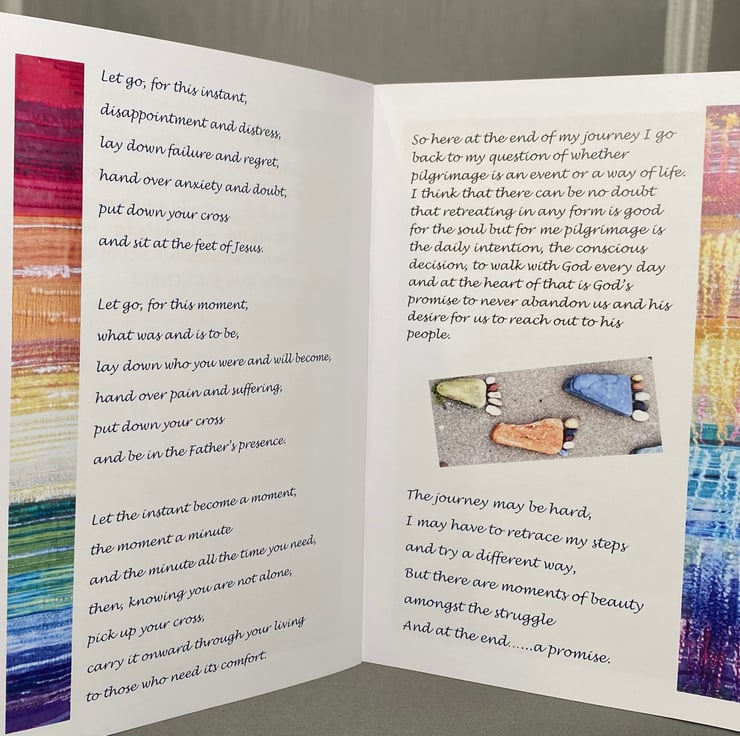 Let go, for this instant,
disappointment and distress,
lay down failure and regret,
hand over anxiety and doubt,
put down your cross
and sit at the feet of Jesus.
Let go, for this moment,
what was and is to be,
lay down who you were and will become,
hand over pain and suffering,
put down your cross
and be in the Father's presence.
Let the instant become a moment,
the moment a minute
and the minute all the time you need,
then, knowing you are not alone,
pick up your cross,
carry it onward through your living
to those who need its comfort.
So here at the end of my journey I go
back to my question of whether
pilgrimage is an event or a way of life.
I think that there can be no doubt
that retreating in any form is good
for the soul but for me pilgrimage is
the daily intention, the conscious
decision, to walk with God every day
and at the heart of that is God's
promise to never abandon us and his
desire for us to reach out to his
people.
The journey may be hard,
I may have to retrace my steps
and try a different way,
But there are moments of beauty
amongst the struggle
And at the end......a promise.